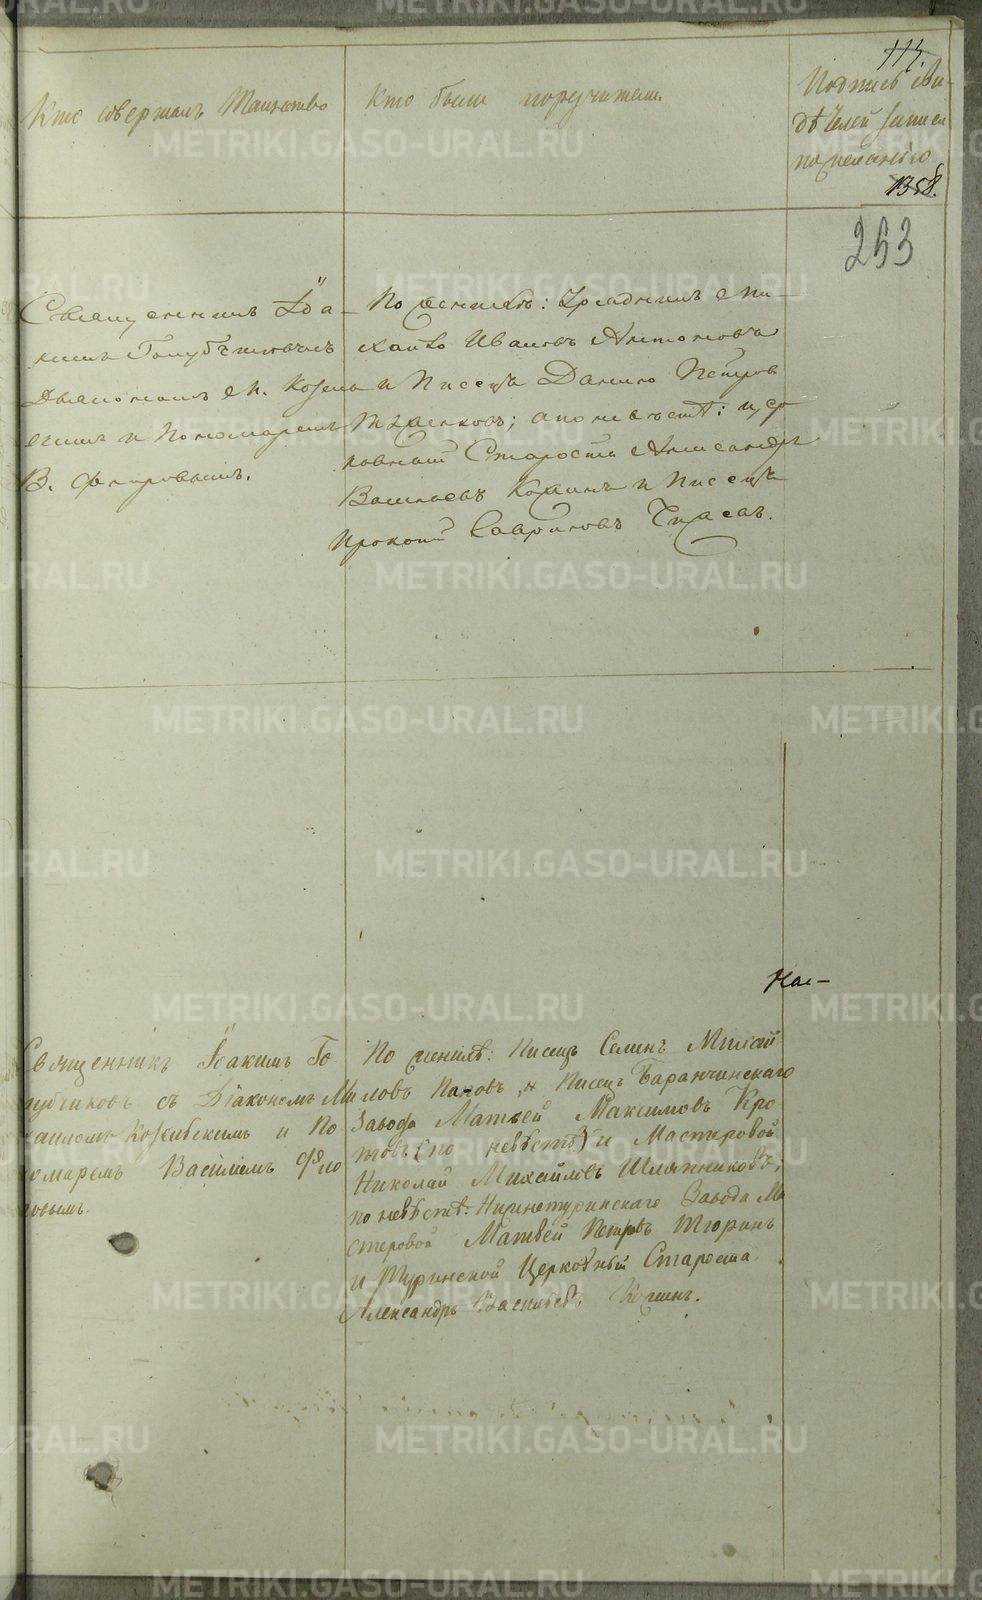 114.
Кто совершалъ Таинство
Кто были поручители.
Подпись сви-
дѣтелей записи
по желанію
1358.
253
Священникъ Іоа-
кимъ Голубчиковъ съ
Діакономъ М. Козель
скимъ и Пономаремъ
В. Флоровымъ.
По женихѣ: Урядникъ Ми-
хайло Ивановъ Антоновъ
и Писецъ Данило Петровъ
; а по невѣстѣ: цер
ковный Староста Александръ
Васильевъ Кошинъ и Писецъ
Прокопій Гавриловъ
Нас-
Священникъ Іоакимъ Го
лубчиковъ съ Діакономъ Ми
хаиломъ Козельскимъ и По
номаремъ Василіемъ Фло
ровымъ.
По женихѣ: Писецъ Семенъ Михай
ловъ Пановъ, и Писецъ Баранчинскаго
Завода Матвей Максимовъ Кро
товъ (по невѣстѣ) и Мастеровой
Николай Михайловъ Шляпниковъ;
по невѣстѣ: Нижнетуринскаго Завода Ма
стеровой Матвей Петровъ Тюринъ
и Туринской Церковный Староста
Александръ Васильевъ Кошинъ.
METRIKI.GASO-URAL.RU